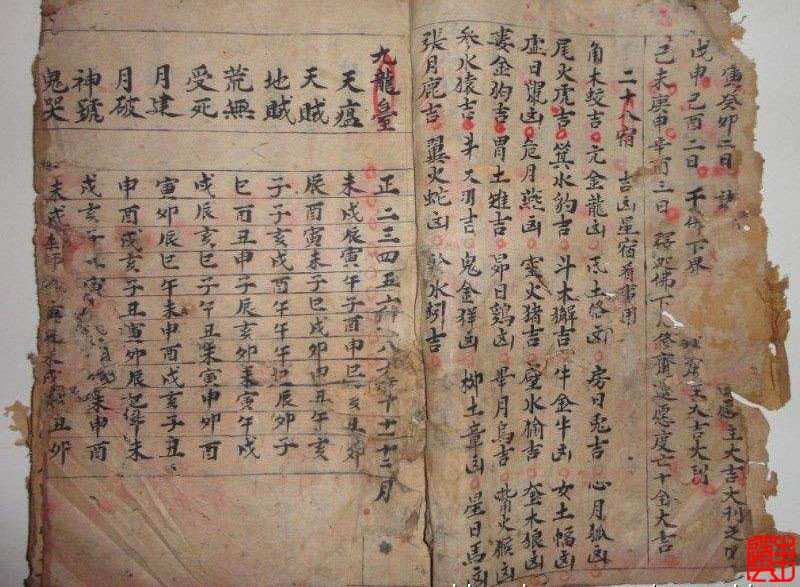 寅癸卯二日 主大吉大利之
戊申己酉二日 千佛下界 主大吉大利
己未庚申辛酉三日 釋迦佛下人修齋還愿度亡十全大吉
二十八宿 吉凶星宿看事用
角木蛟吉 亢金龍凶 氐土狢凶 房日兎吉 心月狐凶
尾火虎吉 箕水豹吉 斗木獬吉 牛金牛凶 女土蝠凶
虚日鼠凶 危月燕凶 室火猪吉 壁水狳吉 奎木狼凶
婁金狗吉 胃土雉吉 昴日鷄凶 畢月烏吉 觜火猴凶
参水猿吉 吉 鬼金羊凶 柳土章凶 星日馬凶
張月鹿吉 翼火蛇凶 軫水蚓吉
九龍皇 正二三四五六八十十一十二月
天瘟 未戌辰寅午子酉申巳亥丑卯
天賊 辰酉寅未子巳戌卯申丑午亥
地賊 子子亥戌酉午午午巳辰卯子
荒無 巳酉丑申子辰亥卯未寅午戌
受死 戌辰亥巳子午丑未寅申卯酉
月建 寅卯辰巳午未申酉戌亥子丑
月破 申酉戌亥子丑寅卯辰巳午未
神號 戌亥子寅未申酉
鬼哭 未戌丑卯